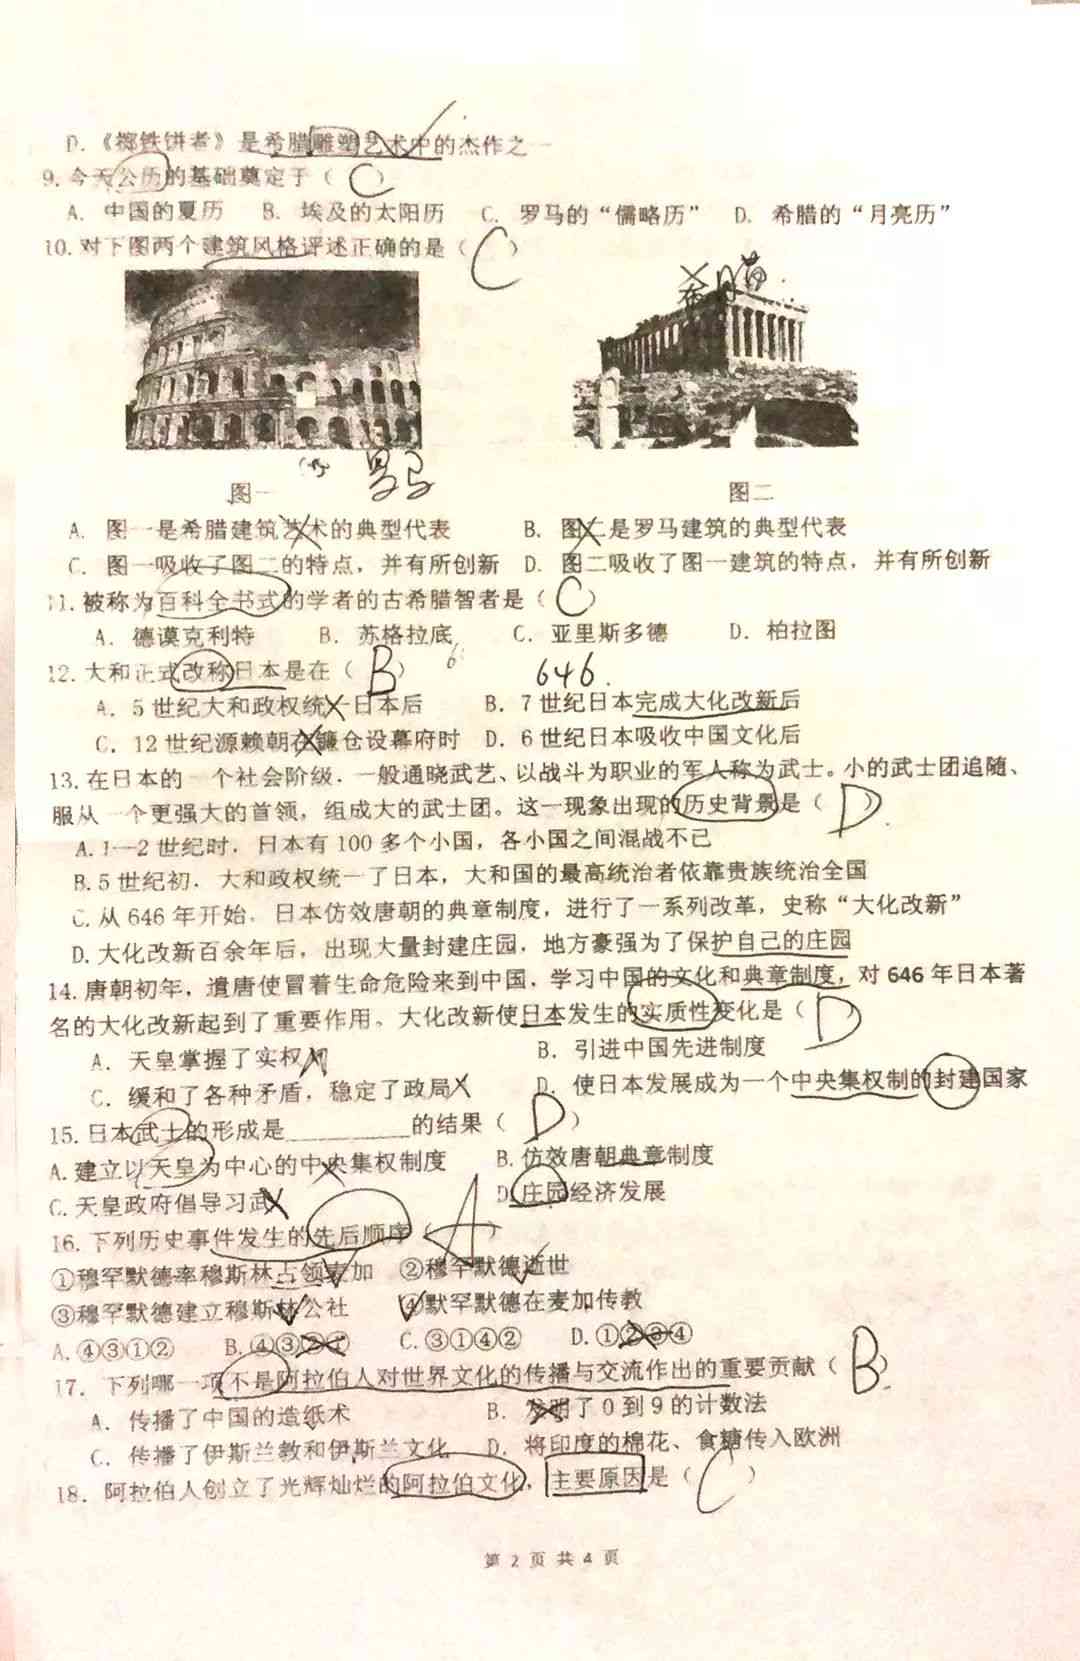 D.《掷铁饼者》是希腊雕塑艺术中的杰作之一
9.今天公历的基础奠定于（ C ）
A. 中国的夏历 B. 埃及的太阳历 C. 罗马的“儒略历” D. 希腊的“月亮历”
10.对下图两个建筑风格评述正确的是（ C ）
希腊
罗马
图一 图二
A. 图一是希腊建筑艺术的典型代表 B. 图二是罗马建筑的典型代表
C. 图一吸收了图二的特点，并有所创新 D. 图二吸收了图一建筑的特点，并有所创新
11.被称为百科全书式的学者的古希腊智者是（ C ）
A. 德谟克利特 B. 苏格拉底 C. 亚里斯多德 D. 柏拉图
12.大和正式改称日本是在（ B ） 646.
A. 5世纪大和政权统一日本后 B. 7世纪日本完成大化改新后
C. 12世纪源赖朝在镰仓设幕府时 D. 6世纪日本吸收中国文化后
13.在日本的一个社会阶级．一般通晓武艺、以战斗为职业的军人称为武士。小的武士团追随、
服从一个更强大的首领，组成大的武士团。这一现象出现的历史背景是（ D ）
A.1—2世纪时．日本有100多个小国，各小国之间混战不已
B.5世纪初．大和政权统一了日本，大和国的最高统治者依靠贵族统治全国
C.从646年开始．日本仿效唐朝的典章制度，进行了一系列改革，史称“大化改新”
D.大化改新百余年后，出现大量封建庄园，地方豪强为了保护自己的庄园
14.唐朝初年，遣唐使冒着生命危险来到中国，学习中国的文化和典章制度，对646年日本著
名的大化改新起到了重要作用。大化改新使日本发生的实质性变化是（ D ）
A. 天皇掌握了实权 B. 引进中国先进制度
C. 缓和了各种矛盾，稳定了政局 D. 使日本发展成为一个中央集权制的封建国家
15.日本武士的形成是__________的结果（ D ）
A.建立以天皇为中心的中央集权制度 B.仿效唐朝典章制度
C.天皇政府倡导习武 D.庄园经济发展
16.下列历史事件发生的先后顺序（ A ）
①穆罕默德率穆斯林占领麦加 ②穆罕默德逝世
③穆罕默德建立穆斯林公社 ④默罕默德在麦加传教
A.④③①② B.④③②① C.③①④② D.①②③④
17. 下列哪一项不是阿拉伯人对世界文化的传播与交流作出的重要贡献（ B ）
A. 传播了中国的造纸术 B. 发明了0到9的计数法
C. 传播了伊斯兰教和伊斯兰文化 D. 将印度的棉花、食糖传入欧洲
18. 阿拉伯人创立了光辉灿烂的阿拉伯文化，主要原因是（ C ）
第 2 页 共 4 页